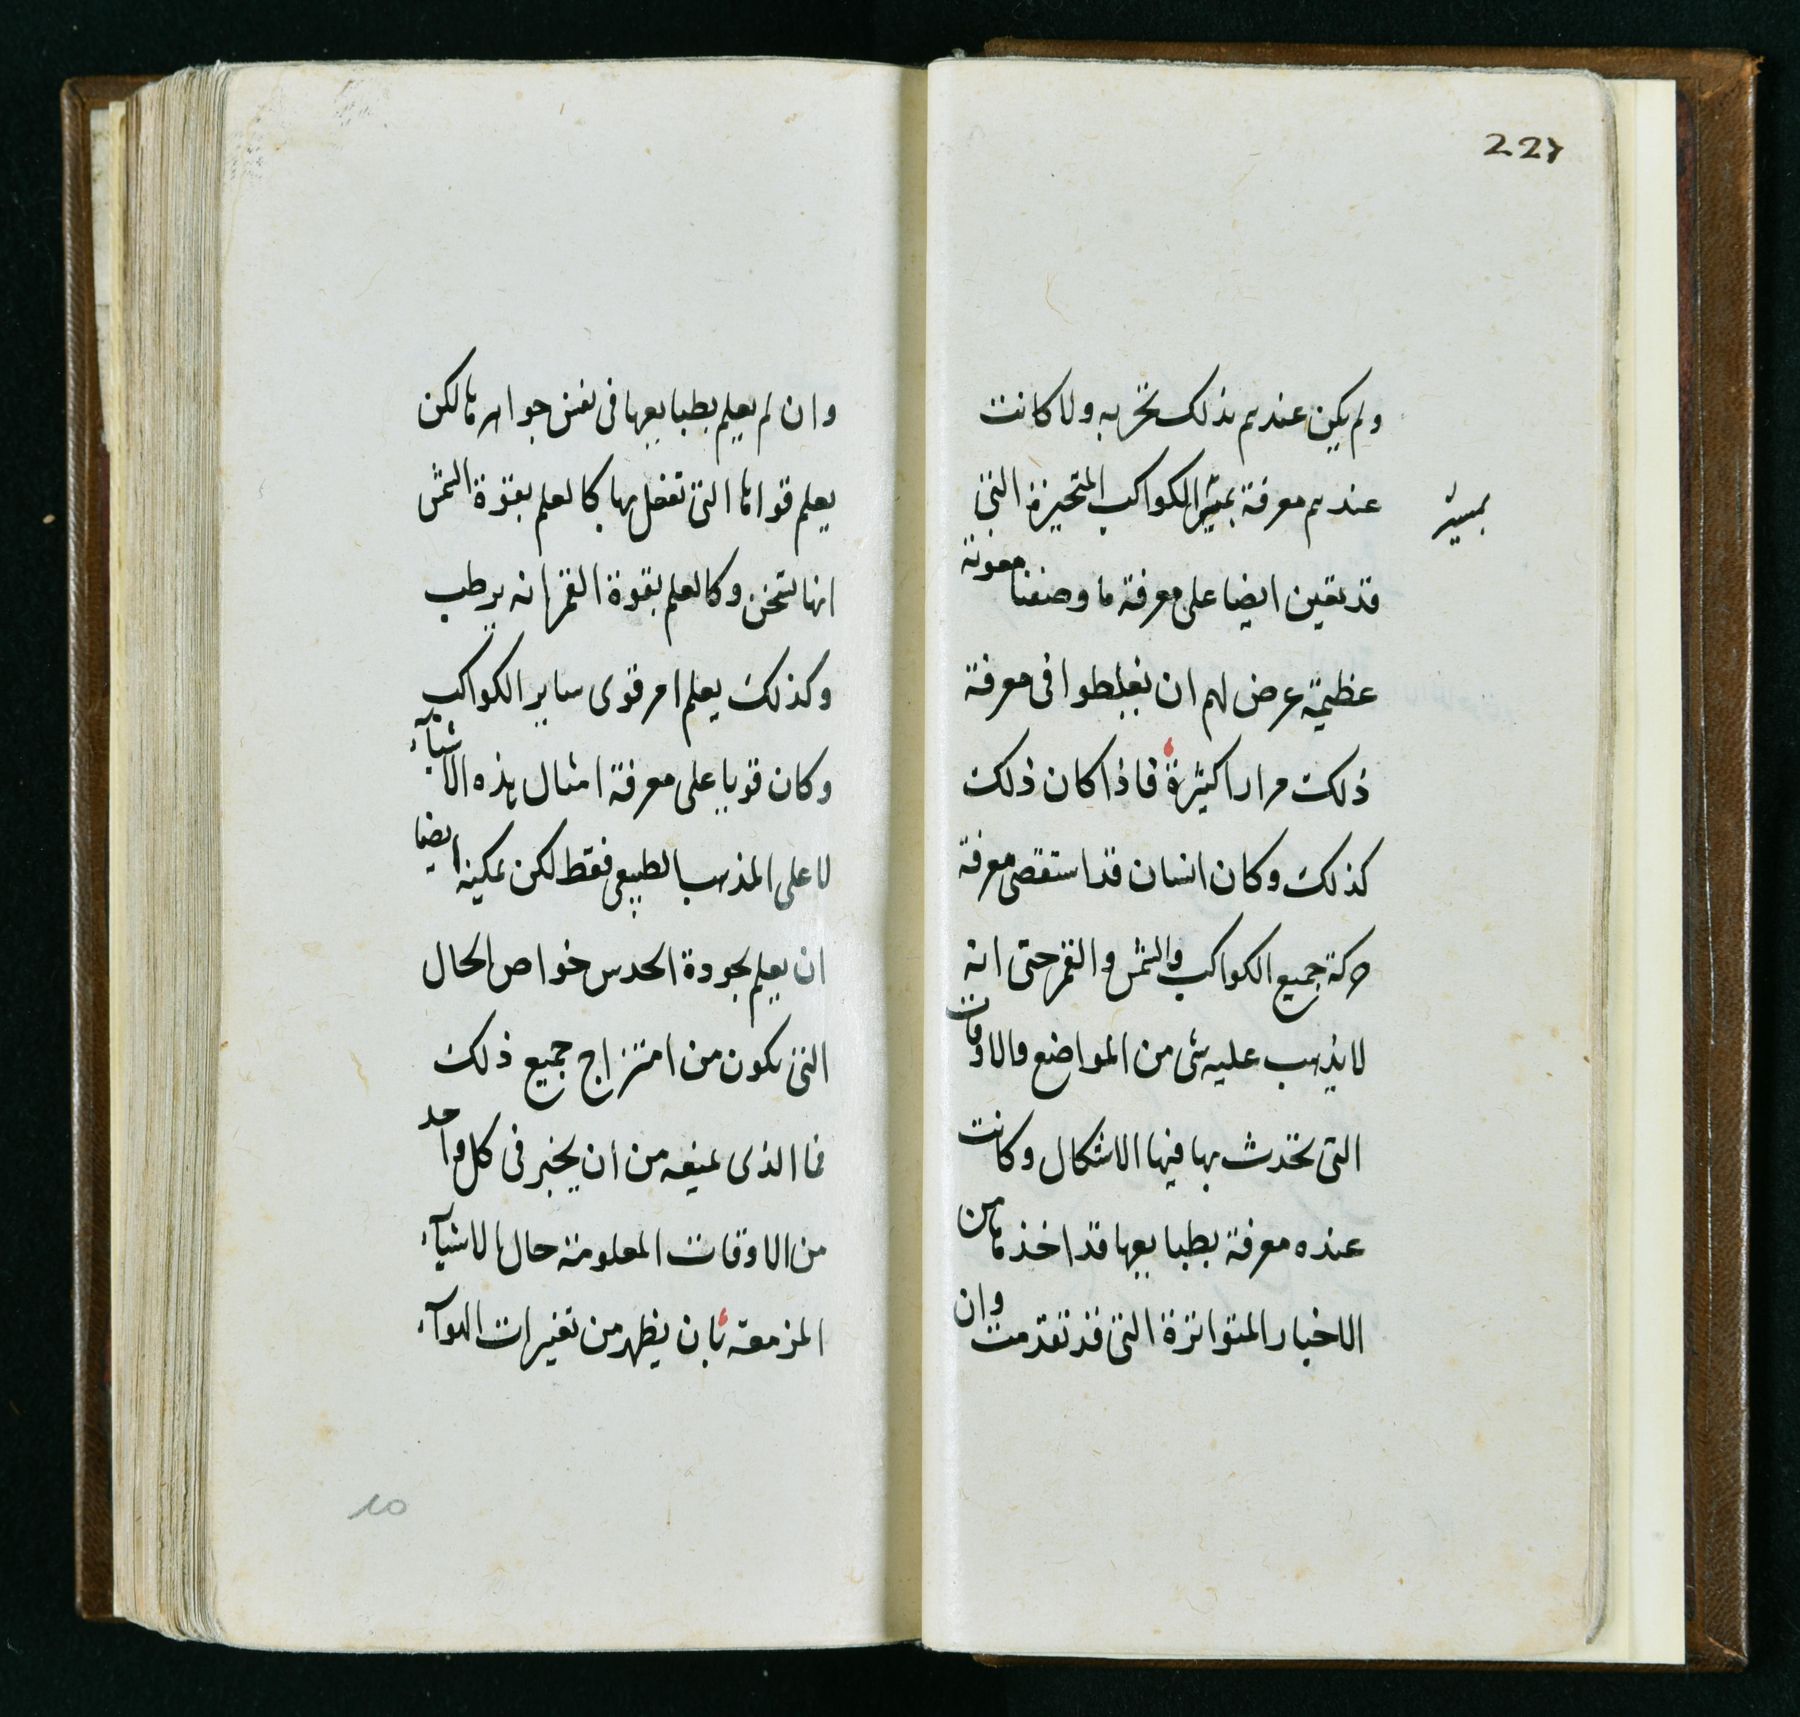 227
ولم يكن عندهم بذلك تخربه ولا كانت
عندهم معرفة بمسير الكواكب المتحيزة التى
بمسير
قد تعين ايضا على معرفة ما وصفنا معونة
عظيمة عرض لهم ان يغلطوا فى معرفة
ذلك مرارا كثيرة فاذا كان ذلك
كذلك وكان انسان قد استقصى معرفة
حركة جميع الكواكب والشمس والقمر حتى انه
لا يذهب عليه شى من المواضع والاوقات
التى تحدث بها فيها الاشكال وكانت
عنده معرفة بطبايعها قد اخذها من
الاخبار المتواترة التى قد تقدمت وان
وان لم يعلم بطبايعها فى نفس جواهرها لكن
يعلم قواها التى تفعل بها كالعلم بقوة الشمس
انها تسخن وكالعلم بقوة القمر انه يرطب
وكذلك يعلم امر قوى ساير الكواكب
وكان قويا على معرفة امثال هذه الاشيآء
لا على المذهب الطبيعى فقط لكن يمكنه ايضا
ان يعلم بجودة الحدس خواص الحال
التى يكون من امتزاج جميع ذلك
فما الذى يمنعه من ان يخبر فى كل واحد
من الاوقات المعلومة حال الاشيآء
المزمعة بان يظهر من تغيرات الهوآء